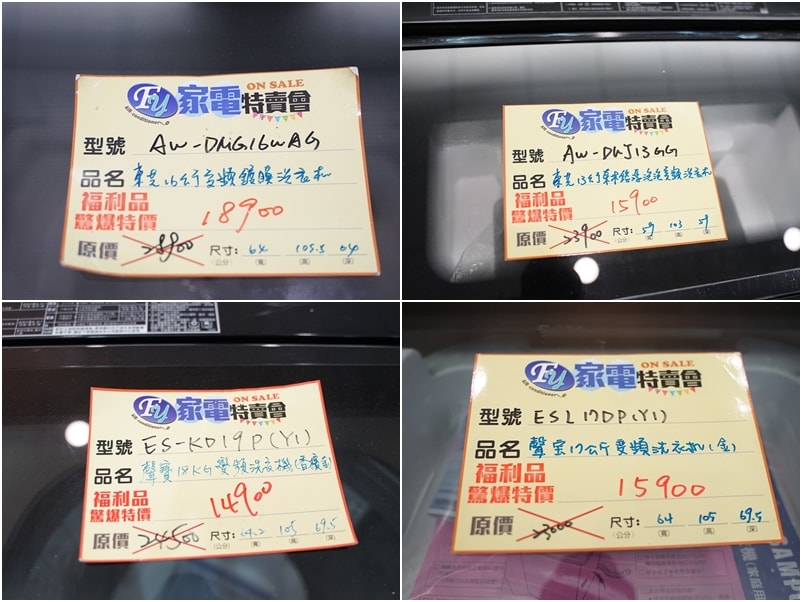 Fu 家電特賣會
ON SALE
型號 AW-DMG16WAG
品名 東芝16公斤變頻鍍膜洗衣机
福利品
驚爆特價 18900
原價 28900 尺寸: 64 105.5 64
(公分) (寬) (高) (深)
Fu 家電特賣會
ON SALE
型號 AW-DUJ13GG
品名 東芝13公斤 洗衣机
福利品
驚爆特價 15900
原價 23900 尺寸: 59 103 59
(公分) (寬) (高) (深)
Fu 家電特賣會
ON SALE
型號 ES-KD19P(Y1)
品名 聲寶18KG變頻洗衣機(香檳金)
福利品
驚爆特價 14900
原價 24500 尺寸: 64.2 105 69.5
(公分) (寬) (高) (深)
Fu 家電特賣會
ON SALE
型號 ESL17DP(Y1)
品名 聲宝17公斤变頻洗衣机(金)
福利品
驚爆特價 15900
原價 尺寸: 64 105 69.5
(公分) (寬) (高) (深)